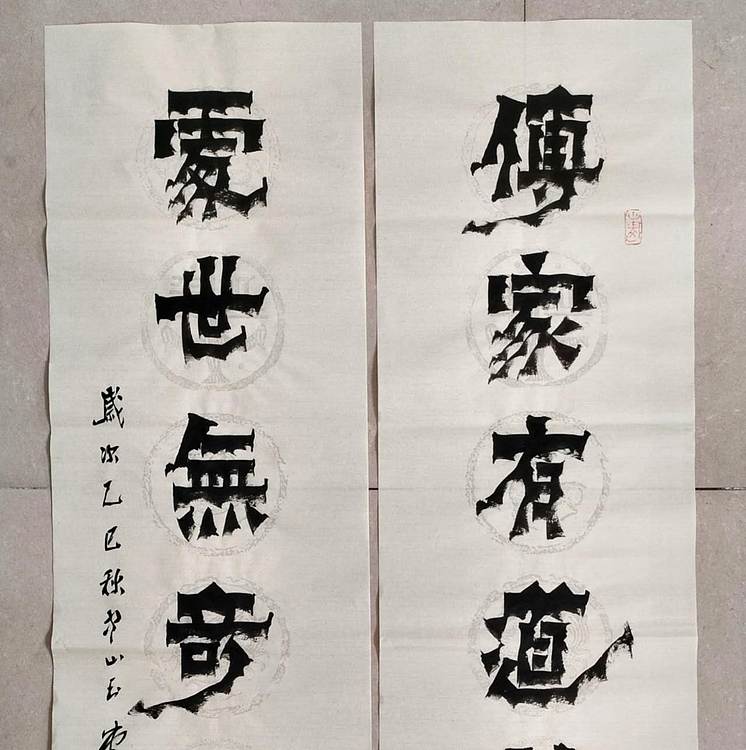 傳家有道
處世無奇
歲次乙巳秋
山玉